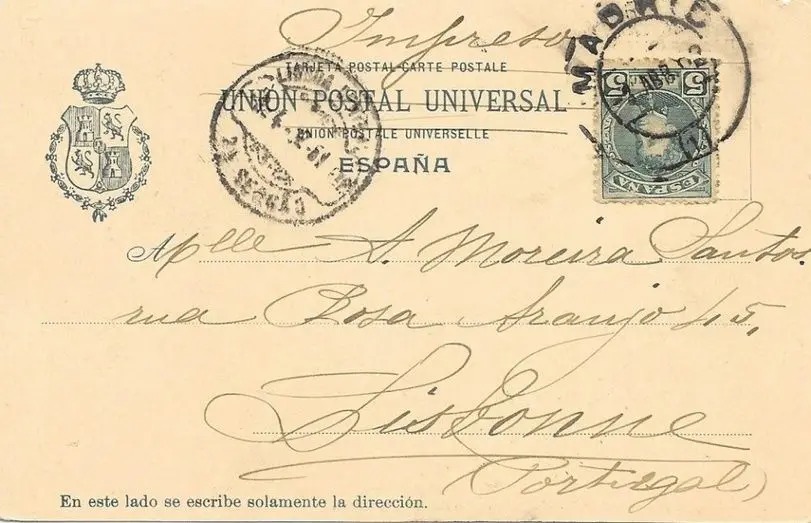 Impreso
TARJETA POSTAL-CARTE POSTALE
UNIÓN POSTAL UNIVERSAL
UNION POSTALE UNIVERSELLE
ESPAÑA
MADRID
5 5
ESPAÑA
Mlle A. Moreira Santos.
rua Rosa Araujo 45,
Lisbonne
Portugal)
En este lado se escribe solamente la dirección.